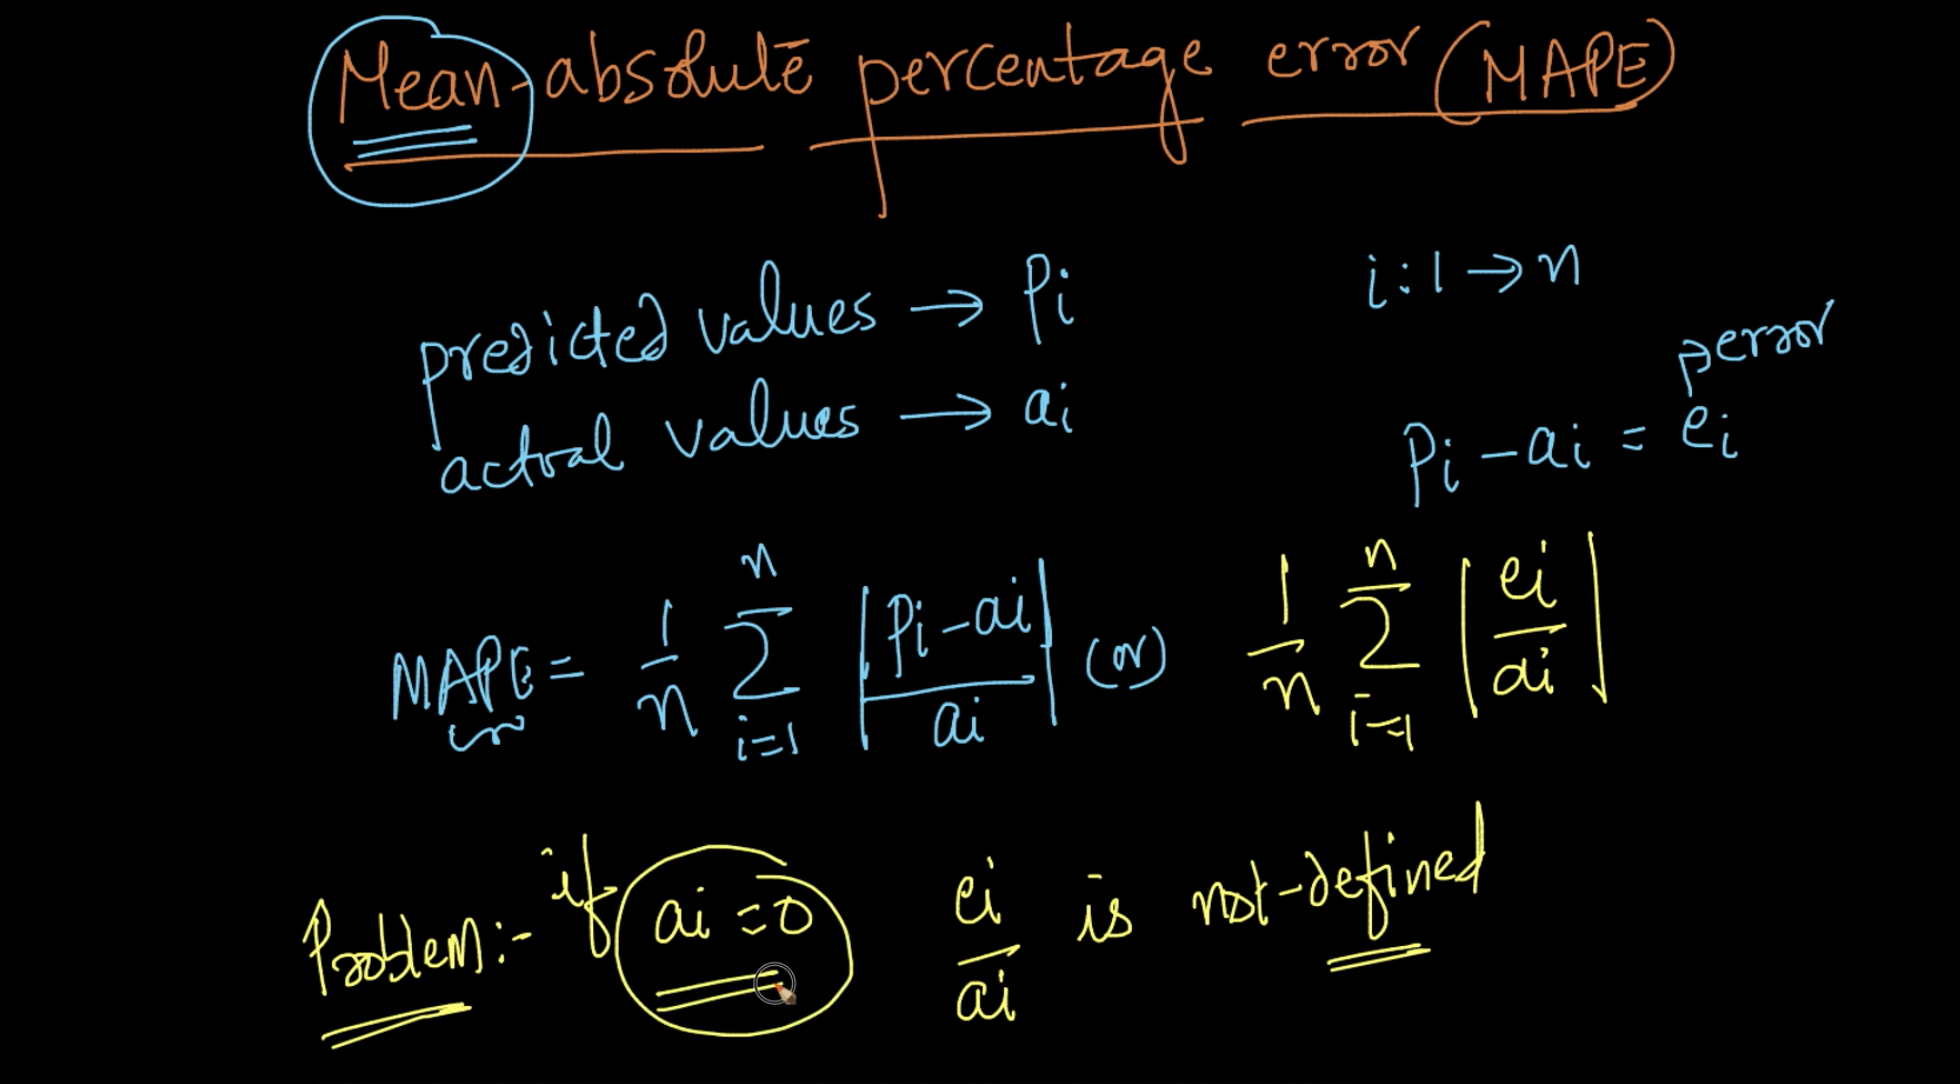 Mean-absolute percentage error (MAPE)
i : 1 → n
predicted values → Pi
actual values → ai
error
Pi - ai = ei
MAPE = 1/n n∑i=1 |Pi - ai / ai| (or) 1/n n∑i=1 |ei / ai|
Problem:- if ai = 0 ei/ai is not-defined